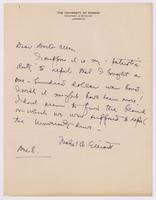 THE UNIVERSITY OF KANSAS
DEPARTMENT OF
LAWRENCE
Dear Doctor Allen
I suppose it is my patriotic
duty to report that I bought a
one-hundred dollar war bond.
I wish it might have been more;
I had seem to find the blank
on which we were supposed to report
the University-news-
Mabel A. Elliott